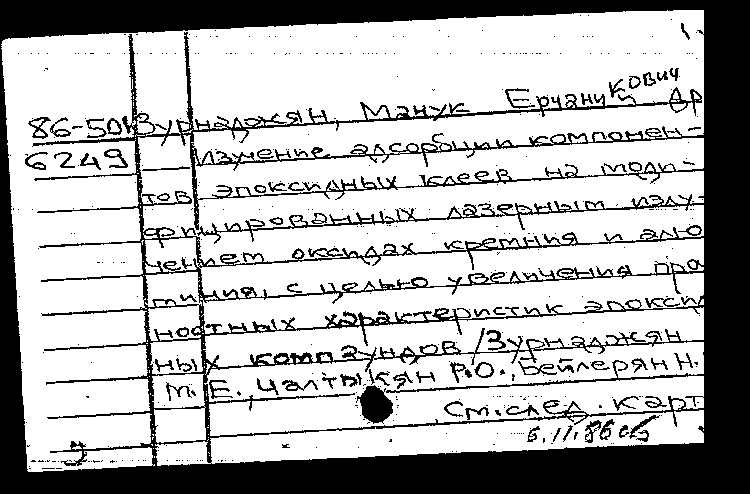 86-501 Зурнаджян, Манук Ерчаникович др
6249 Изучение адсорбции компонен-
тов эпоксидных клеев на моди-
фицированных лазерным излу-
чением оксидах кремния и алю
миния, с целью увеличения про
ностных характеристик эпоксид
ных компаундов / Зурнаджян
М. Е., Чалтыкян Р.О., Бейлерян Н.
См. след. карт
6.11.86